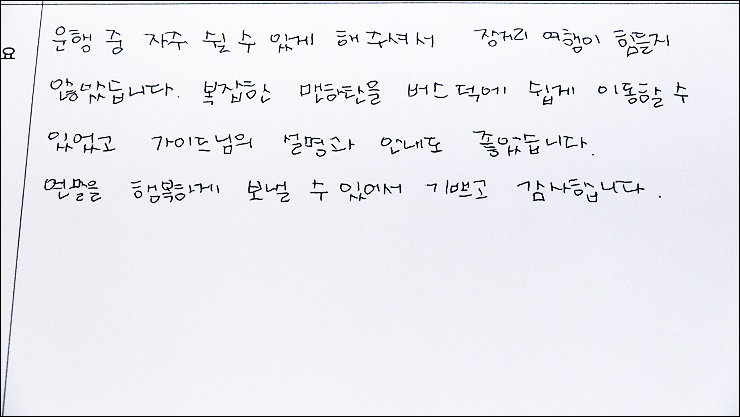 운행 중 자주 쉴 수 있게 해주셔서 장거리 여행이 힘들지
않았습니다. 복잡한 맨하탄을 버스 덕에 쉽게 이동할 수
있었고 가이드님의 설명과 안내도 좋았습니다.
연말을 행복하게 보낼 수 있어서 기쁘고 감사합니다.
요